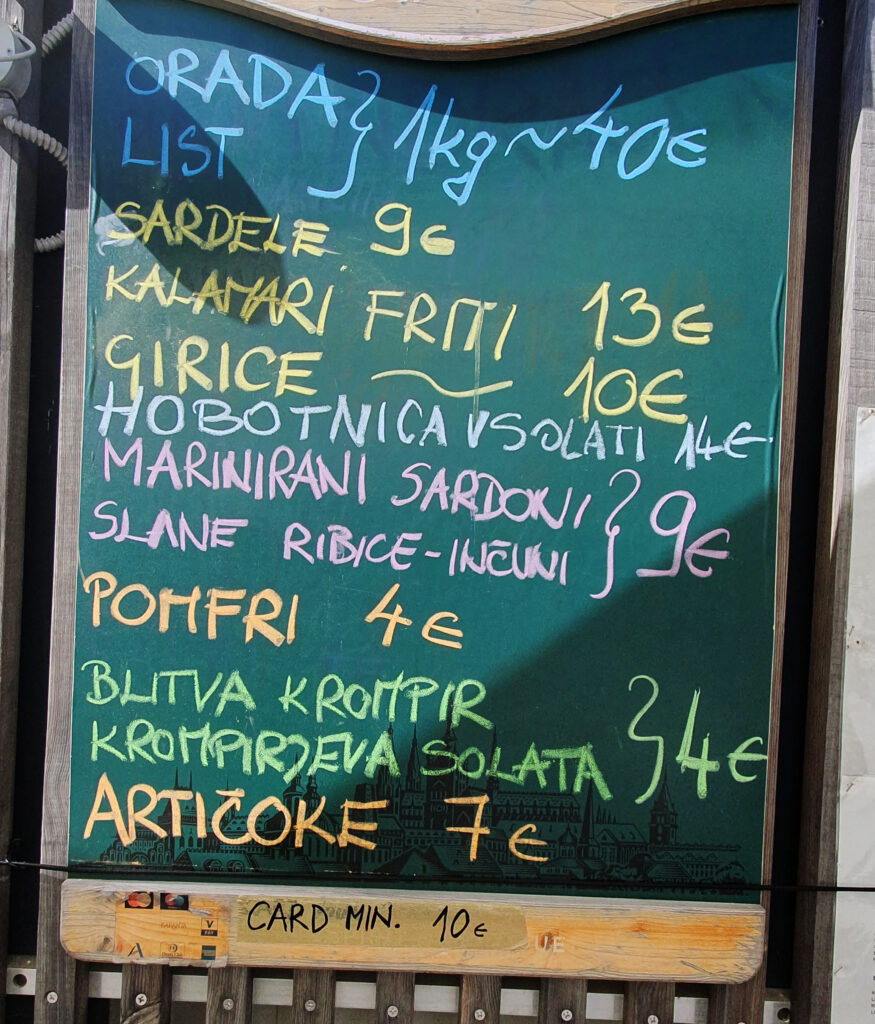 ORADA } 1kg ~ 40€
LIST
SARDELE 9€
KALAMARI FRITI 13€
GIRICE — 10€
HOBOTNICA V SOLATI 14€
MARINIRANI SARDONI } 9€
SLANE RIBICE-INČUNI
POMFRI 4€
BLITVA KROMPIR } 4€
KROMPIRJEVA SOLATA
ARTIČOKE 7€
CARD MIN. 10€